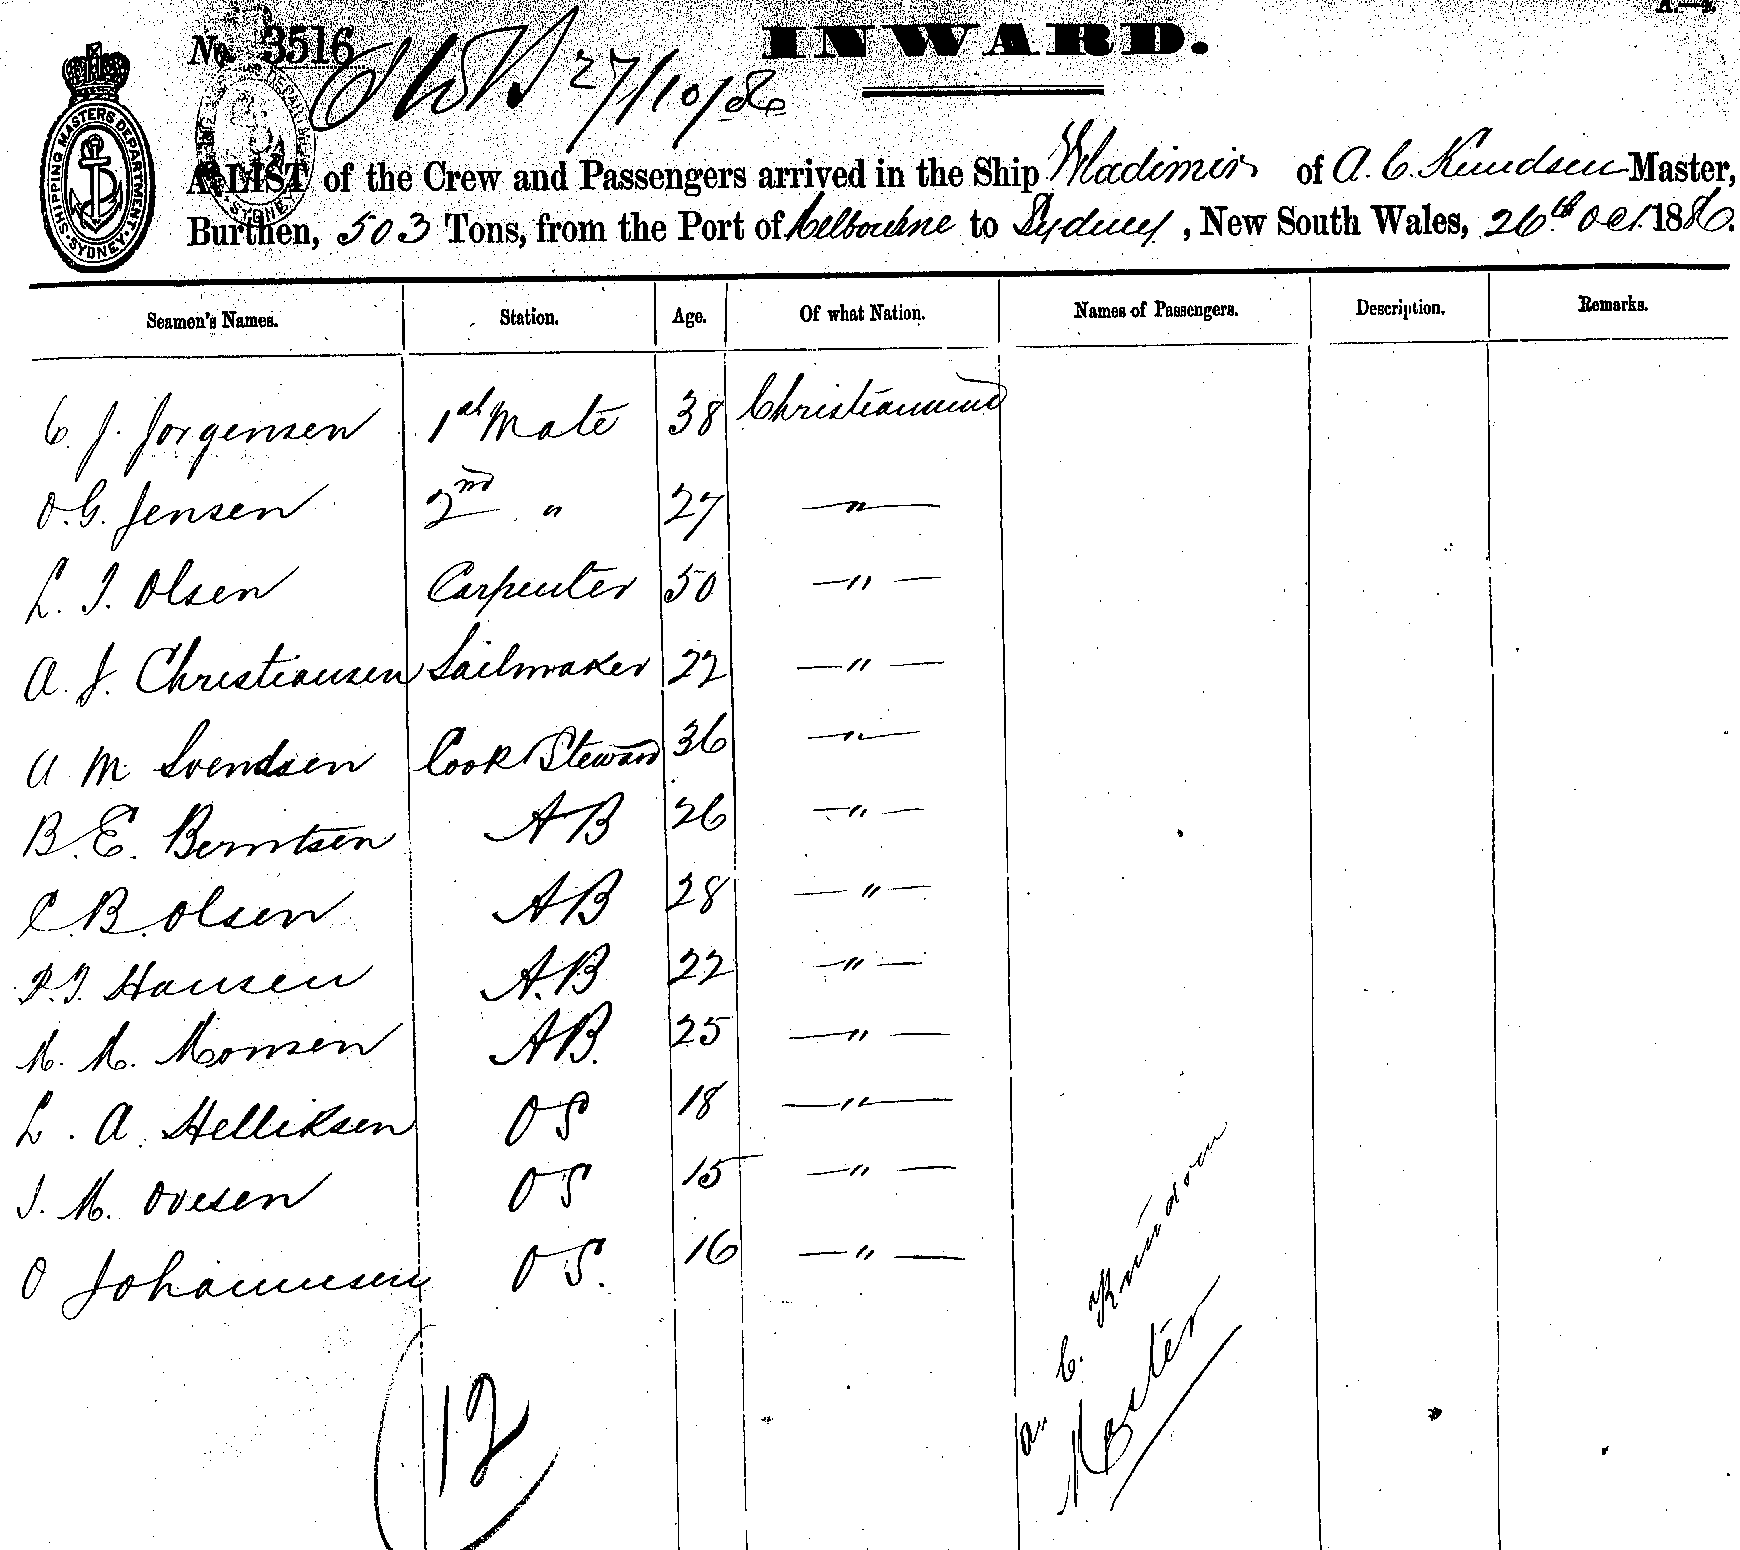 No. 3516
27/10/86
INWARD.
SHIPPING MASTERS DEPARTMENT SYDNEY
A LIST of the Crew and Passengers arrived in the Ship Wladimir of A. C. Knudsen Master,
Burthen, 503 Tons, from the Port of Melbourne to Sydney, New South Wales, 26th Oct. 1886.
Seamen's Names. Station. Age. Of what Nation. Names of Passengers. Description. Remarks.
C. J. Jorgensen 1st Mate 38 Christiansund
O. G. Jensen 2nd " 27 — " —
L. J. Olsen Carpenter 50 — " —
A. J. Christiansen Sailmaker 22 — " —
A M Svendsen Cook Steward 36 — " —
B. E. Berntsen AB 26 — " —
C. B. Olsen AB 28 — " —
P. J. Hansen A.B 22 — " —
M. M. Monsen AB. 25 — " —
L. A. Helliksen OS 18 — " —
J. M. Ovesen OS 15 — " —
O Johannesen OS. 16 — " —
A. C. Knudsen
Master
12